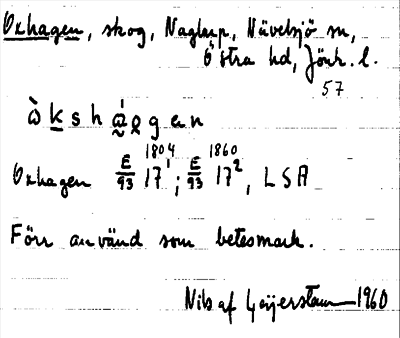 Oxhagen, skog, Naglarp, Nävelsjö sn,
Östra hd, Jönk. l.
57
ò̀k s h á̰ g a n
1804 1860
Oxhagen E/93 17¹; E/93 17², LSA
Förr använd som betesmark.
Nils af Geijerstam 1960